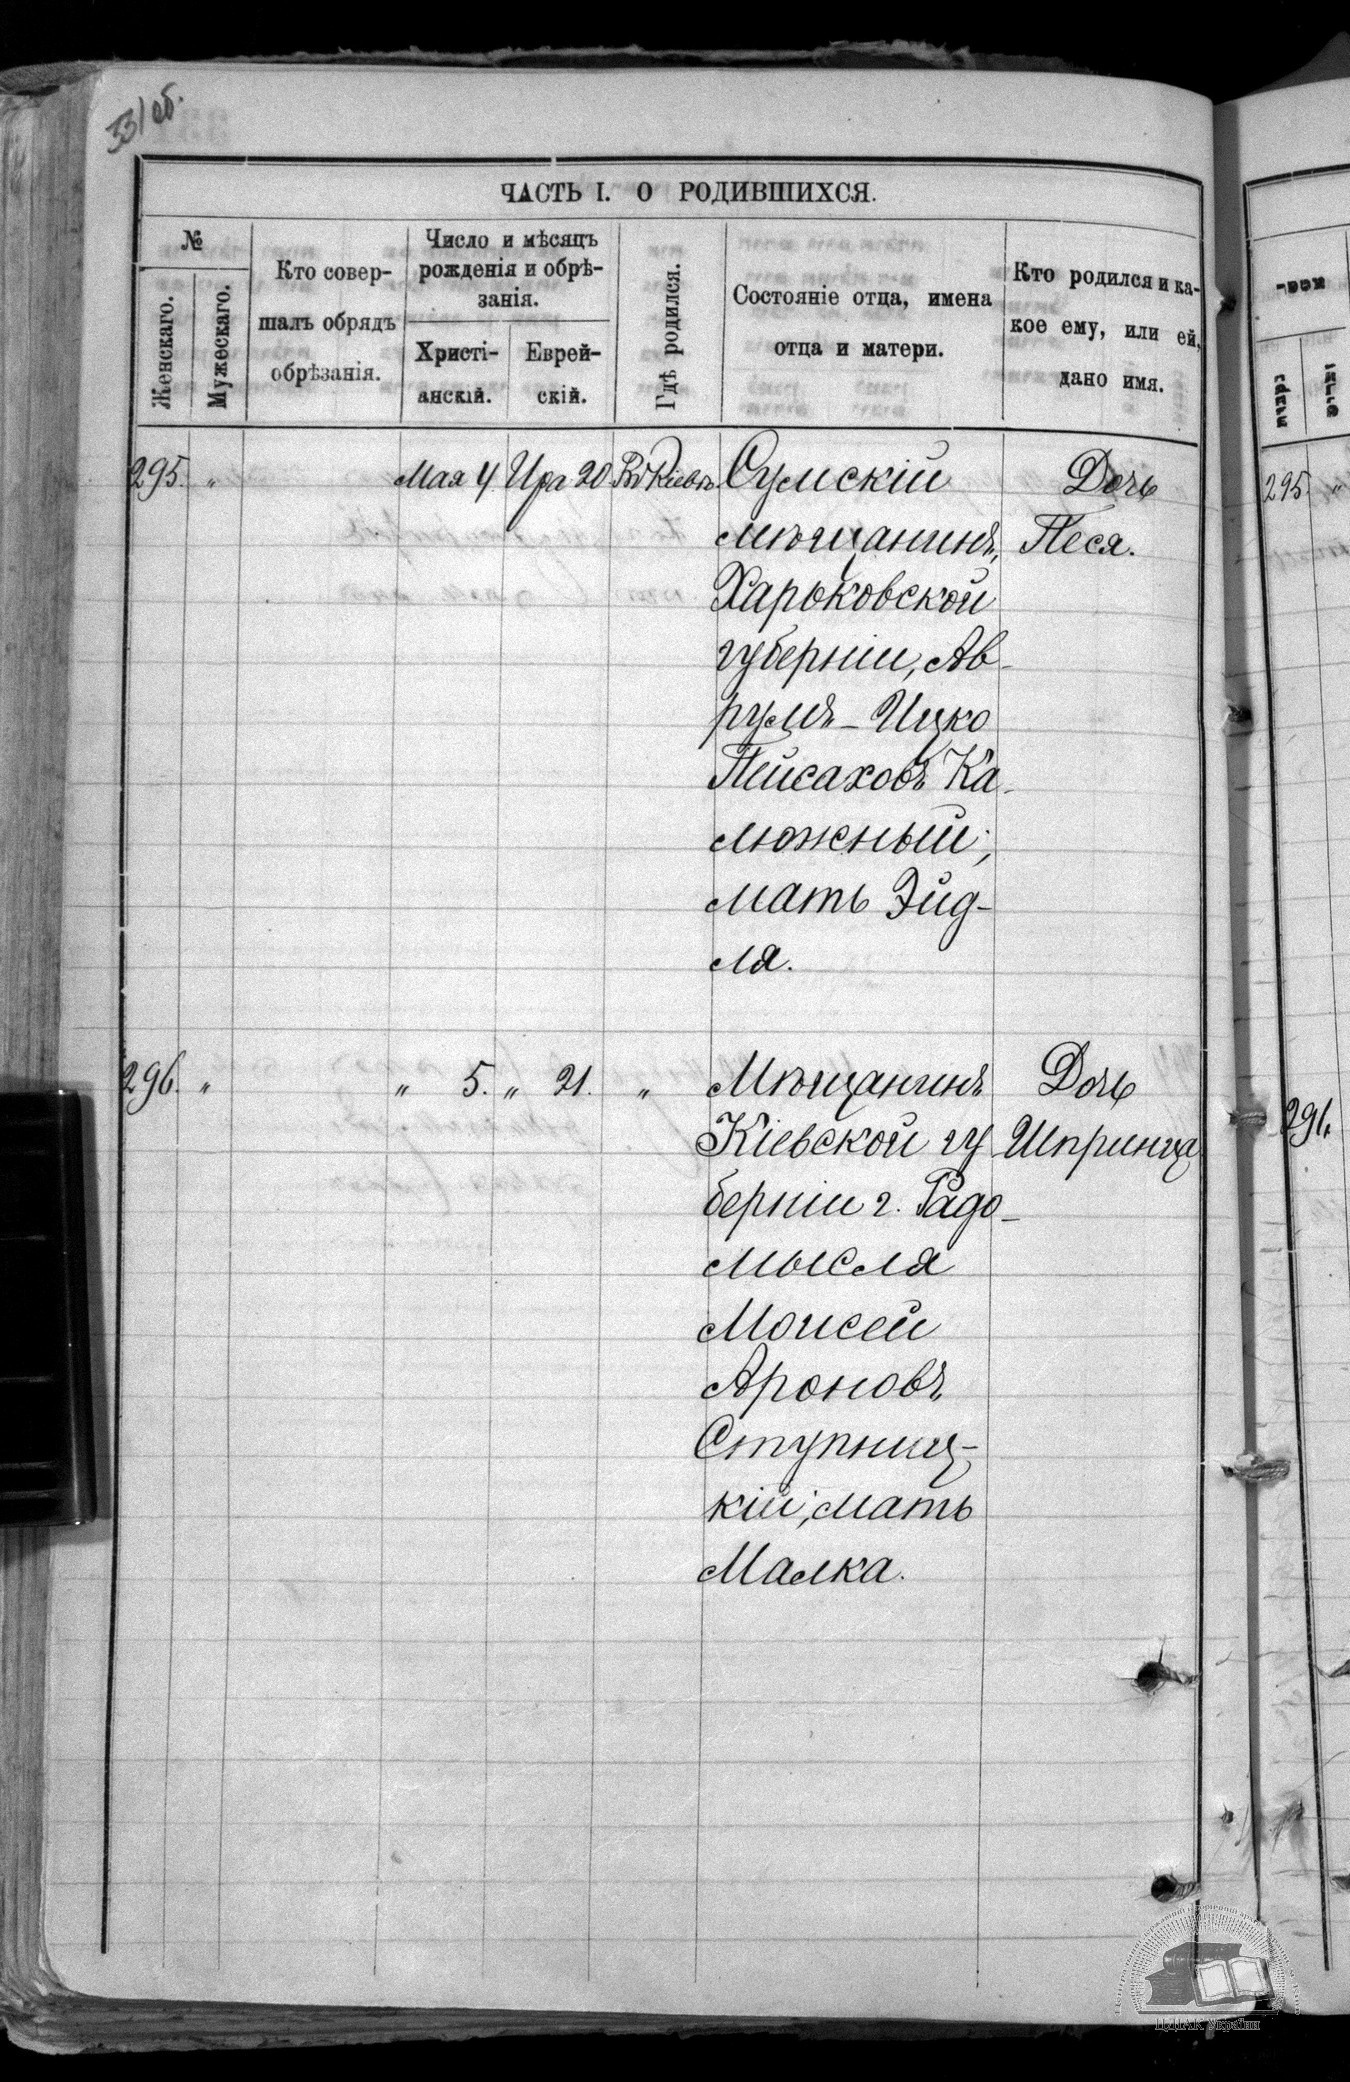 33/об.
ЧАСТЬ I. О РОДИВШИХСЯ.
№
Женскаго.
Мужескаго.
Кто совер-
шалъ обрядъ
обрѣзанія.
Число и мѣсяцъ
рожденія и обрѣ-
занія.
Христі-
анскій.
Еврей-
скій.
Гдѣ родился.
Состояніе отца, имена
отца и матери.
Кто родился и ка-
кое ему, или ей,
дано имя.
295. " Мая 4 Ира 20 Въ Кіевѣ Сумскій Дочь
мѣщанинъ, Песя.
Харьковской
губерніи, Ав-
румъ-Ицко
Пейсаховъ Ка-
люжный;
мать Эйд-
ля.
296. " " 5. " 21. " Мѣщанинъ Дочь
Кіевской гу Шпринца
берніи г. Радо-
мысля
Моисей
Ароновъ
Ступниц-
кій; мать
Малка.
295 "
296.
ЦДІАК України